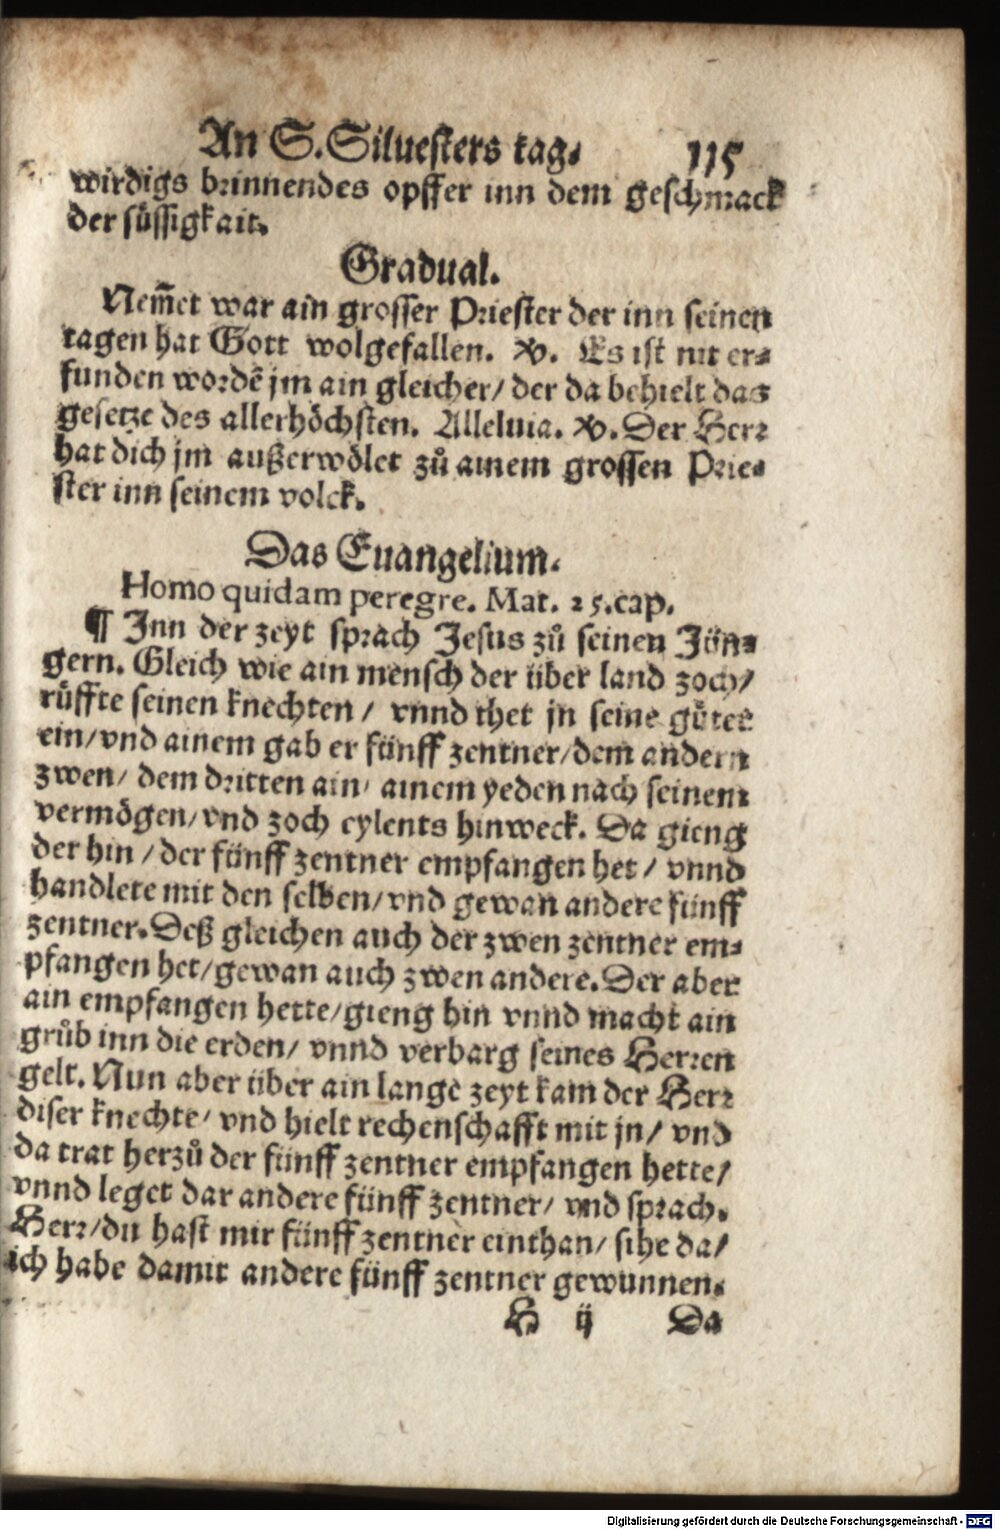 An S. Siluesters tag. 115
wirdigs brinnendes opffer inn dem geschmack
der süssigkait.
Gradual.
Nem̃et war ain grosser Priester der inn seinen
tagen hat Gott wolgefallen. ℣. Es ist nit er-
funden wordẽ jm ain gleicher/ der da behielt das
gesetze des allerhöchsten. Alleluia. ℣. Der Herr
hat dich jm außerwölet zů ainem grossen Prie-
ster inn seinem volck.
Das Euangelium.
Homo quidam peregre. Mat. 25.cap.
¶ Inn der zeyt sprach Jesus zů seinen Jün-
gern. Gleich wie ain mensch der über land zoch/
rüffte seinen knechten/ vnnd thet jn seine güter
ein/vnd ainem gab er fünff zentner/dem andern
zwen/ dem dritten ain/ ainem yeden nach seinem
vermögen/vnd zoch eylents hinweck. Da gieng
der hin/der fünff zentner empfangen het/ vnnd
handlete mit den selben/vnd gewan andere fünff
zentner. Deß gleichen auch der zwen zentner em-
pfangen het/gewan auch zwen andere. Der aber
ain empfangen hette/gieng hin vnnd macht ain
grůb inn die erden/ vnnd verbarg seines Herren
gelt. Nun aber über ain lange zeyt kam der Herr
diser knechte/ vnd hielt rechenschafft mit jn/ vnd
da trat herzů der fünff zentner empfangen hette/
vnnd leget dar andere fünff zentner/ vnd sprach.
Herr/du hast mir fünff zentner einthan/ sihe da/
ich habe damit andere fünff zentner gewunnen.
H ij Da
Digitalisierung gefördert durch die Deutsche Forschungsgemeinschaft - DFG